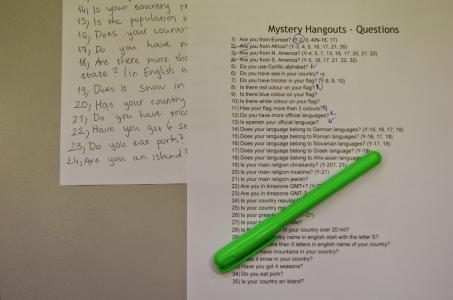 14, Is your country re
15, Is the population o
16, Does your count
17, Do you have n
18, Are there more tha
state? (In English n
19, Does it snow in
20, Has your country
21, Do you have
22, Have you got 4 se
23, Do you eat pork?
24, Are you an island?
Mystery Hangouts - Questions
1) Are you from Europe? 16, 17)
2) Are you from Africa? (Y-3, 4, 5, 16, 17, 21, 35)
3) Are you from N. America? (Y-4, 5, 7, 13, 16, 17, 20, 21, 22)
4) Are you from S. America? (Y-5, 16, 17, 21, 22, 32)
5) Do you use Cyrillic alphabet? N
6) Do you have sea in your country? y
7) Do you have tricolor in your flag? (Y-8, 9, 10)
8) Is there red colour on your flag?
9) Is there blue colour on your flag?
10) Is there white colour on your flag?
11) Has your flag more than 3 colours?
12) Do you have more official languages?
13) Is spanish your official language?
14) Does your language belong to German languages? (Y-15, 16, 17, 18)
15) Does your language belong to Roman languages? (Y-16, 17, 18)
16) Does your language belong to Slovanian languages? (Y-17, 18)
17) Does your language belong to Greek language? (Y-18)
18) Does your language belong to Afro-asian language
19) Is your main religion christianity? (Y-201, 21)
20) Is your main religion muslims? (Y-21)
21) Is your main religion jewish?
22) Are you in timezone GMT+?
23) Are you in timezone GMT-
24) Is your country republic
25) Is your country
26) Is your presid -27)
27) Is your
28) Is the of your country over 20 mil?
country name in english start with the letter S?
more than 5 letters in english name of your country?
have mountains in your country?
it snow in your country?
33) Have you got 4 seasons?
34) Do you eat pork?
35) Is your country an island?